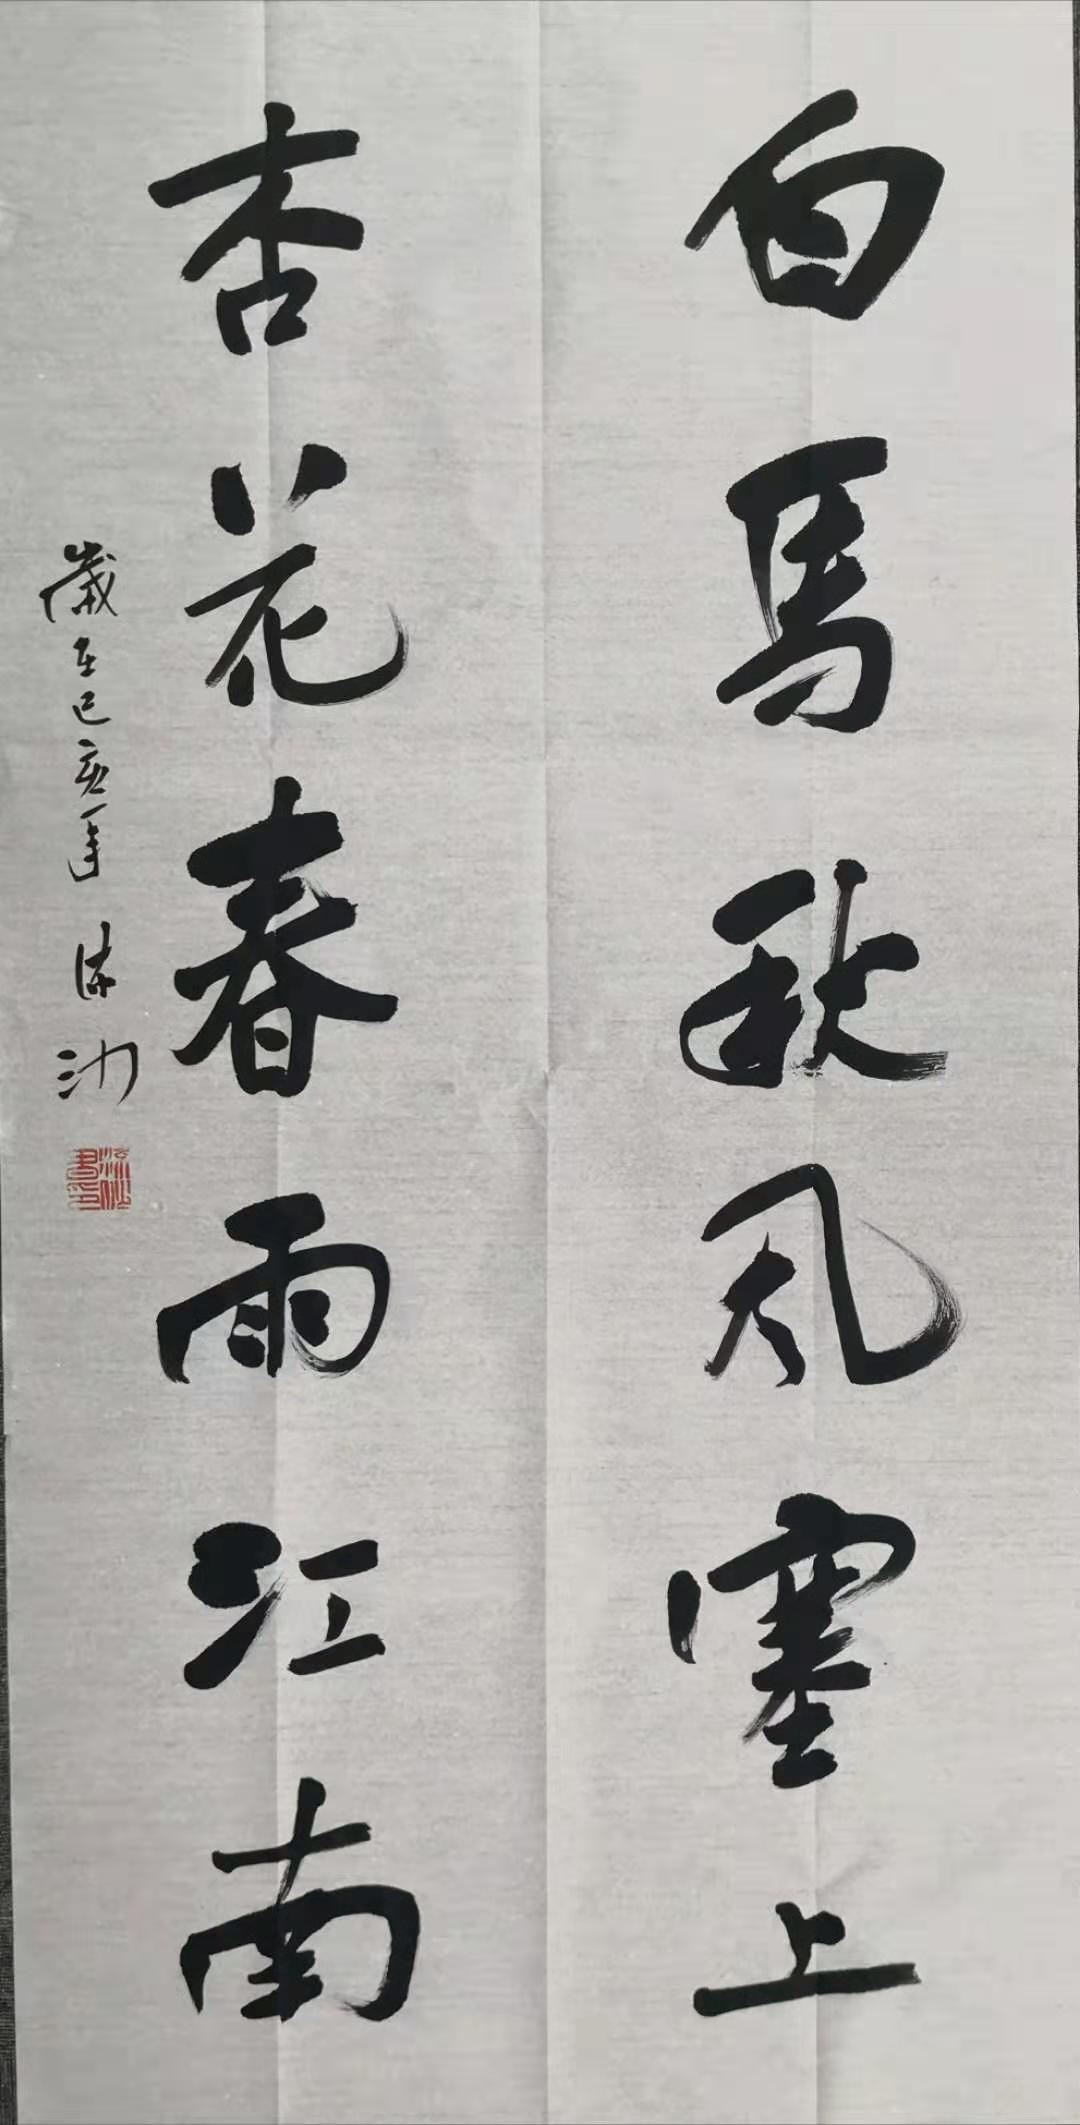 白馬秋风塞上
杏花春雨江南
歲在己亥年